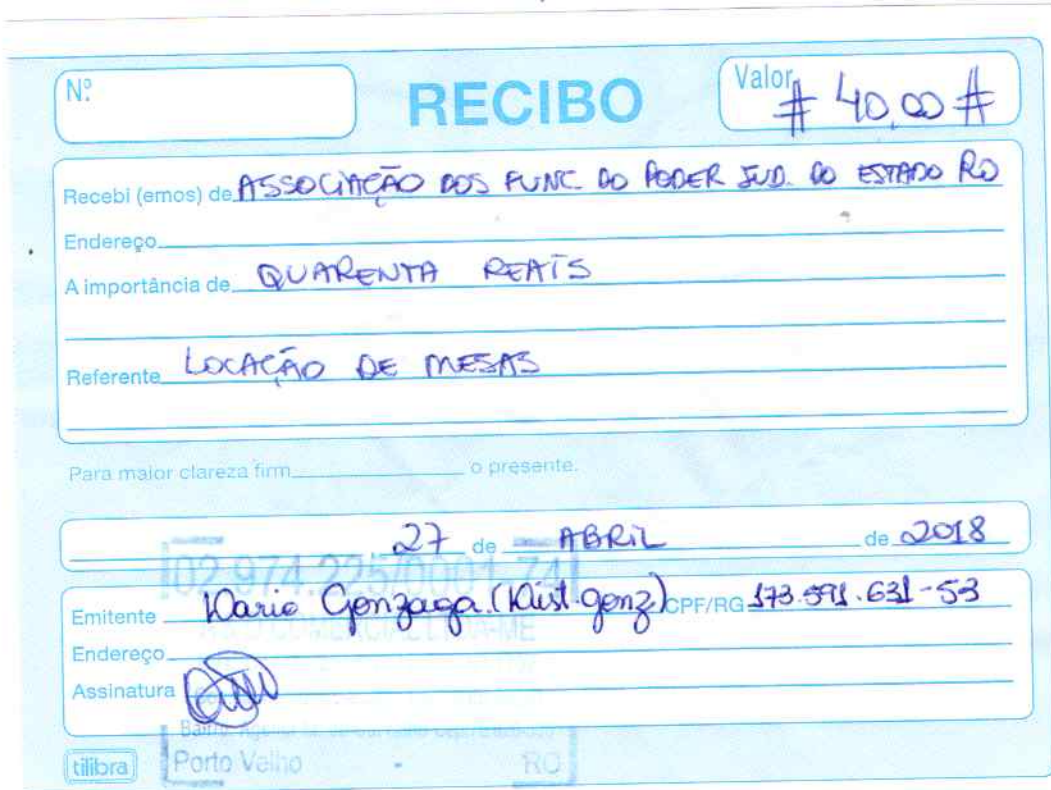 Nº
RECIBO
Valor # 40,00 #
Recebi (emos) de ASSOCIAÇÃO DOS FUNC. DO PODER JUD. DO ESTADO RO
Endereço
A importância de QUARENTA REAIS
Referente LOCAÇÃO DE MESAS
Para maior clareza firm o presente.
27 de ABRIL de 2018
02.974.225/0001-74
Emitente Dario Gonzaga. (Dist. Gonz) CPF/RG 173.591.631-53
COMERCIAL LTDA-ME
Endereço
Assinatura
Bairro
tilibra
Porto Velho - RO